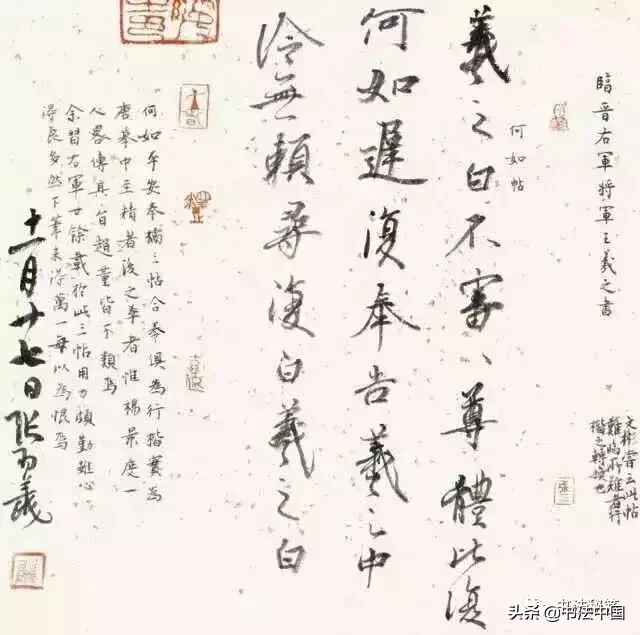 臨晋右軍將軍王羲之書
文彬嘗云此帖
難臨所難者行
楷之轉換也
何如帖
羲之白不審、尊體比復
何如遲復奉告羲之中
冷無賴尋復白羲之白
何如平安奉橘三帖合奉俱為行楷實為
唐摹中至精者後之 者惟楊景度一
人畧傳真旨趙董皆不類焉
余習右軍廿餘載於此三帖用力頗勤雖心
得良多然下筆未得萬一每以為恨焉
十一月廿七日張
头条 @书法中国